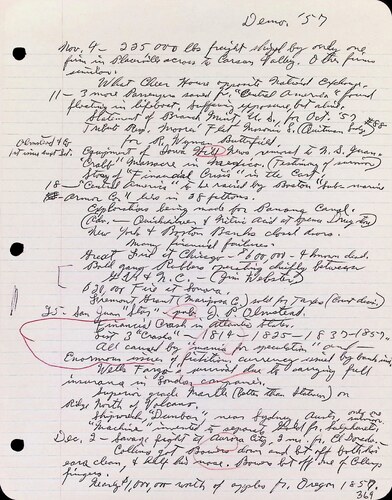 Demo. '57
Nov. 4 - 225 000 lbs freight shipped by only one
firm in Placerville across to Carson Valley. Other firms
similar.
What Cheer House opposite National Exchange.
11 - 3 more Survivors saved fr. "Central America" found
floating in lifeboat. Suffering exposure, but alive.
Statement of Branch Mint, U.S., for Oct. '57
for R. Wynn, Butterfield.
Equipment of Sonora removed to N. S. Juan.
"Crabb" Massacre in Mexico (Testimony of survivor)
Story of "Financial Crisis" in the East.
18 - "Central America" to be raised by Boston "Sub-marine
Armor Co." lies in 28 fathoms.
Explorations being made for Panama Canal.
Adv. - Quicksilver & Nitric Acid at
New York & Boston Banks closed doors.
Many financial failures.
Great Fire at Chicago - $600,000 - 4 known dead.
Bell gang Robbers operating chiefly between
G.V. & N.C. - (Jim Webster)
$20,000 Fire at Sonora.
Fremont Grant (Mariposa C.) sold for Taxes
25 - San Juan "Star" - pub. J. P. Olmstead.
Financial Crash in Atlantic States.
List 3 "Crashes" - 1814 - 1825 - 1837 - 1857
All caused by "mania for speculation" and -
Enormous issues of fictitious currency issued by banks
Wells Fargo survived due to carrying full
insurance in London companies.
Superior grade Marble (better than Italian) on
Ridge North of Volcano.
Shipwreck "Dunbar" near Sydney Aust., only one
"Machine" invented to separate Gold fr. Sulphurets.
Dec. 2 - Savage fight at Aurora City, 2 mi. fr. El Dorado.
Collins got down and bit off both his
ears clean, & half his nose. bit off one of Collins
fingers.
Nearly $1,000,000 worth of apples fr. Oregon 1857.
36